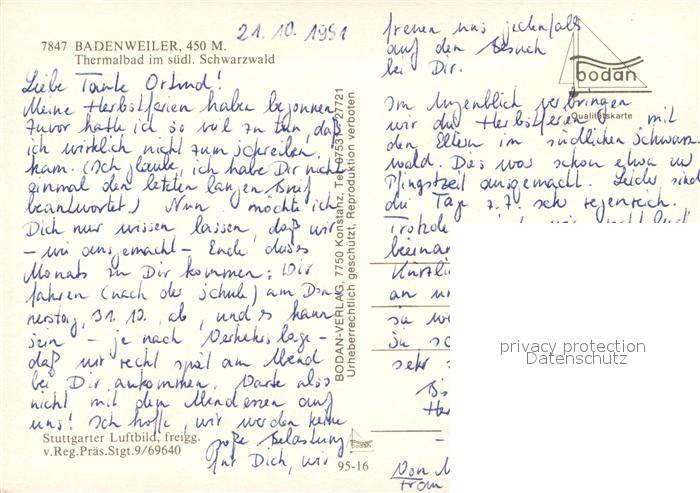 21.10.1991
7847 BADENWEILER, 450 M.
Thermalbad im südl. Schwarzwald
Liebe Tante Ortrud!
Meine Herbstferien haben begonnen.
Zuvor hatte ich so viel zu tun, daß
ich wirklich nicht zum schreiben
kam. (Ich glaube, ich habe Dir nicht
einmal den letzten langen Brief
beantwortet.) Nun möchte ich
Dich nur wissen lassen, daß wir
– wie ausgemacht – Ende dieses
Monats zu Dir kommen: Wir
fahren (nach der Schule) am Don-
nerstag, 31.10. ab, und es kann
sein – je nach Verkehrslage –
daß wir recht spät am Abend
bei Dir ankommen. Warte also
nicht mit dem Abendessen auf
uns! Ich hoffe, wir werden keine
große Belastung
für Dich, wir
Stuttgarter Luftbild, freigg.
v.Reg.Präs.Stgt.9/69640
95-16
bodan
BODAN-VERLAG, 7750 Konstanz, Tel. 07531 - 27721
Urheberrechtlich geschützt, Reproduktion verboten
freuen uns jedenfalls
auf den Besuch
bei Dir.
bodan
Qualitätskarte
Im Augenblick verbringen
wir die Herbstferien mit
den Eltern im südlichen Schwarz-
wald. Dies war schon etwa zur
Pfingstzeit ausgemacht. Leider sind
die Tage z.Z. sehr regenreich.
Trotzde
beeinan
Kürzli
an un
sie we
sehr
Bis
He
Von M
Fram
privacy protection
Datenschutz